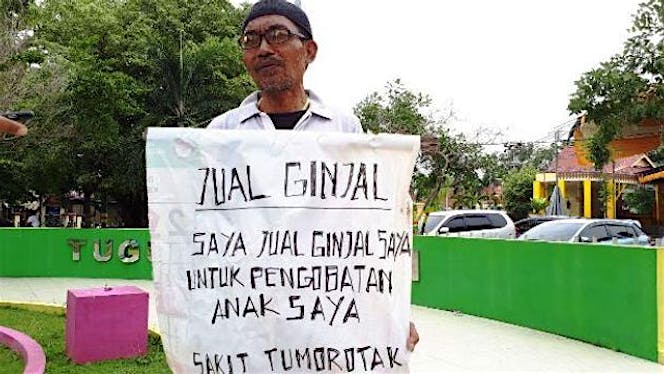 JUAL GINJAL
SAYA JUAL GINJAL SAYA
UNTUK PENGOBATAN
ANAK SAYA
SAKIT TUMOROTAK
TUGU